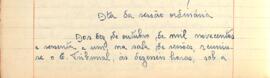 Ata da sessão ordinária
Aos dez de outubro, de mil novecentos
e sessenta e um na sala de sessões reuniu-
se o E. Tribunal, às dezenove horas, sob a